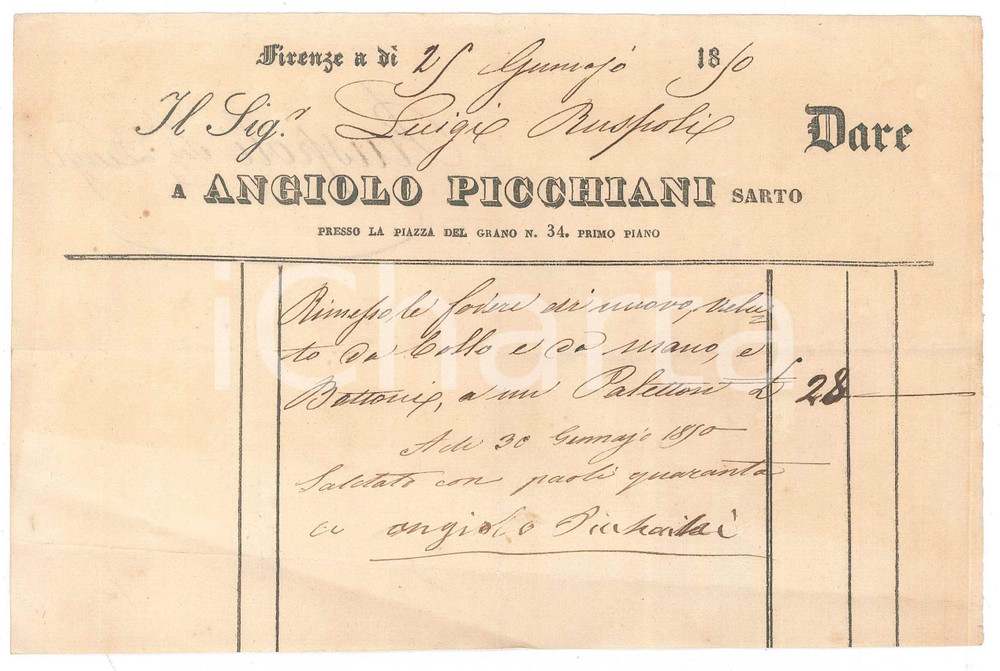 Firenze a dì 25 Gennajo 1850
Il Sig.r Luigi Ruspoli Dare
A ANGIOLO PICCHIANI SARTO
PRESSO LA PIAZZA DEL GRANO N. 34. PRIMO PIANO
Rimesso le fodere di nuovo, Velu=
to da Collo e da mano, e
Bottoni, a un Paletton £ 28
A di 30 Gennajo 1850
Saldato con paoli quaranta
angiolo Pichiani
iCharta